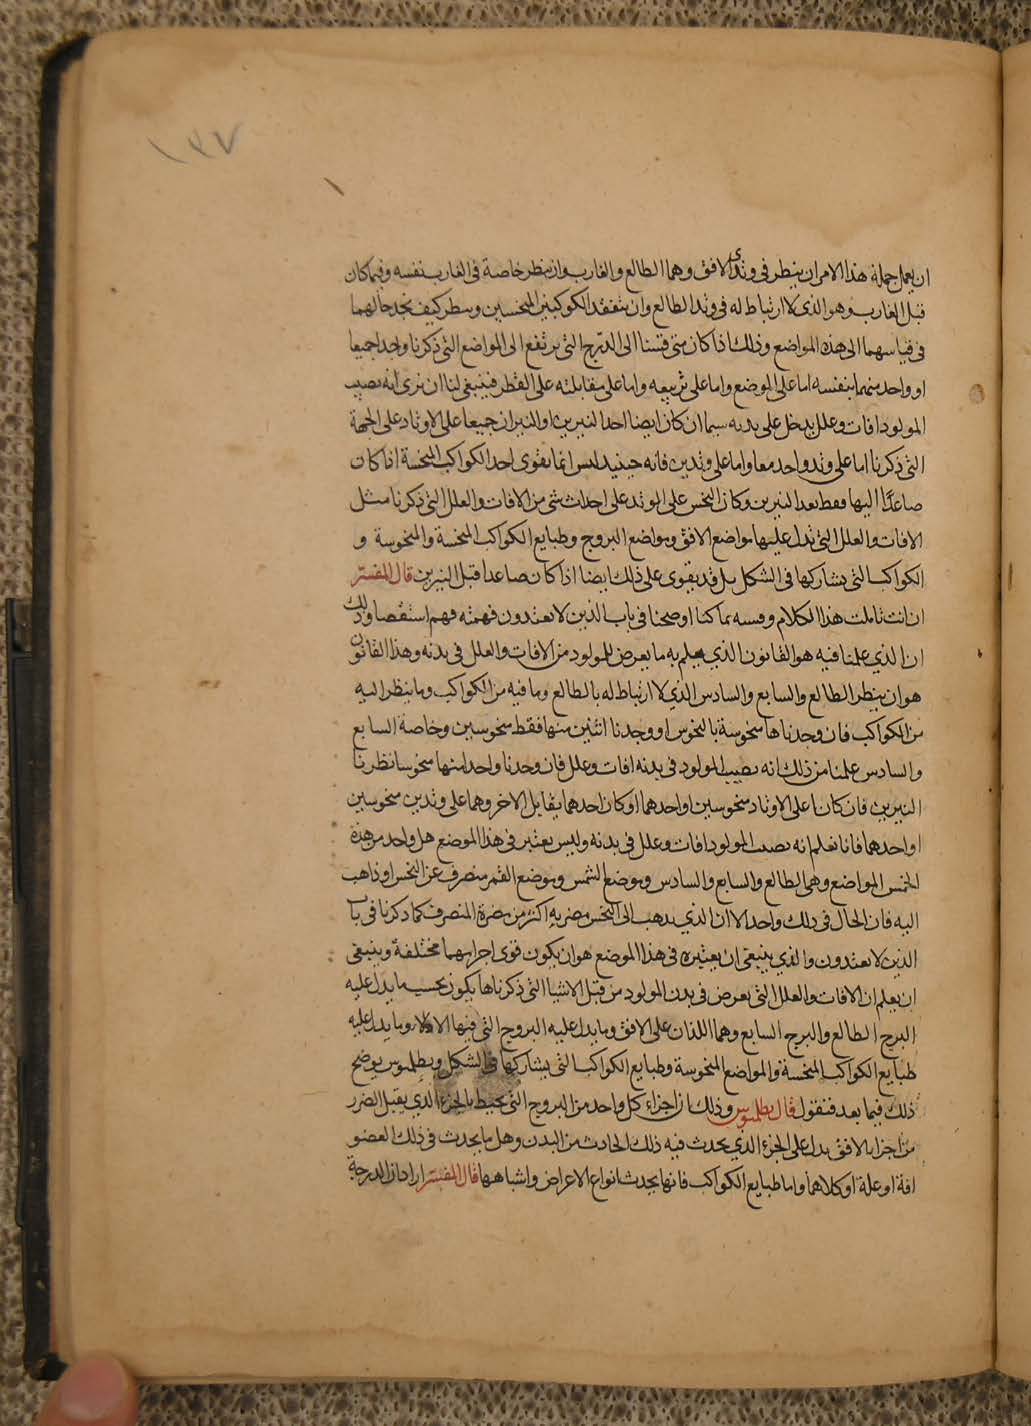 ١٣٧
ان يعمل جملة هذا الامر ان ينظر في وتدى الافق وهما الطالع والغارب وان ينظر خاصة في الغارب نفسه وفيما كان
قبل الغارب وهو الذي لا ارتباط له في وتد الطالع وان نتفقد الكوكبين المنحسين وننظر كيف نجد حالهما
في قياسهما الى هذه المواضع وذلك اذا كان متى قسنا الى الدرج التي ترتفع الى المواضع التي ذكرنا واحدا جميعا
او واحد منهما بنفسه اما على الموضع واما على تربيعه واما على مقابلته على القطر فينبغي لنا ان نرى انه تصيب
المولود افات وعلل تدخل على بدنه سيما ان كان ايضا احد النيرين او النيران جميعا على الاوتاد على الجهة
التي ذكرنا اما على وتد واحد معا واما على وتدين فانه حينيذ ليس انما يقوى احد الكواكب المنحسة اذا كان
صاعدا اليها فقط بعد النيرين وكان النحس على الوتد على احداث شي من الافات والعلل التي ذكرنا مثل
الافات والعلل التي تدل عليها مواضع الافق ومواضع البروج وطبايع الكواكب المنحسة والمنحوسة و
الكواكب التي يشاركها في الشكل بل قد يقوى على ذلك ايضا اذا كان صاعدا قبل النيرين قال المفسر
ان انت تاملت هذا الكلام وقسته بما كنا اوضحنا في باب الذين لا يغتذون فهمته فهم استقصا وذلك
ان الذي علمنا فيه هو القانون الذي يعلم به ما يعرض للمولود من الافات والعلل في بدنه وهذا القانون
هو ان ينظر الطالع والسابع والسادس الذي لا ارتباط له بالطالع وما فيه من الكواكب وما ينظر اليه
من الكواكب فان وجدناها منحوسة بالنحوس او وجدنا اثنين منها فقط منحوسين وخاصة السابع
والسادس علمنا من ذلك انه تصيب المولود في بدنه افات وعلل فان وجدنا واحدا منها منحوسا نظرنا
النيرين فان كانا على الاوتاد منحوسين او احدهما او كان احدهما يقابل الاخر وهما على وتدين منحوسين
او احدهما فانا نعلم انه تصيب المولود افات وعلل في بدنه وليس يعتبر في هذا الموضع هل واحد من هذه
الخمس المواضع وهي الطالع والسابع والسادس وموضع الشمس وموضع القمر منصرف عن النحس او ذاهب
اليه فان الحال في ذلك واحد الا ان الذي يذهب الى النحس مضرته اكثر من مضرة المنصرف كما ذكرنا في باب
الذين لا يغتذون والذي ينبغي ان يعتبره في هذا الموضع هو ان يكون قوى اجرايهما مختلفة وينبغي
ان يعلم ان الافات والعلل التي تعرض في بدن المولود من قبل الاشيا التي ذكرناها يكون بحسب ما يدل عليه
البرج الطالع والبرج السابع وهما اللذان على الافق وما يدل عليه البروج التي فيها الاولا وما يدل عليه
طبايع الكواكب المنحسة والمواضع المنحوسة وطبايع الكواكب التي يشاركها في الشكل وبطلميوس يوضح
ذلك فيما بعد فنقول قال بطلميوس وذلك ان اجزاء كل واحد من البروج التي تحيط بالجزء الذي يقبل الضرر
من اجزاء الافق يدل على الجزء الذي يحدث فيه ذلك الحادث من البدن وهل ما يحدث في ذلك العضو
افة او علة او كلاهما واما طبايع الكواكب فانها يحدث انواع الاعراض واشباهها قال المفسر اراد ان الدرجة